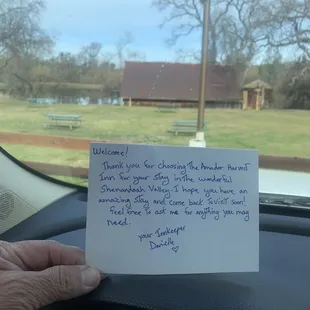 Welcome!
Thank you for choosing The Amador Harvest
Inn for your stay in the wonderful
Shenandoah Valley. I hope you have an
amazing stay and come back to visit soon!
Feel free to ask me for anything you may
need.
your Innkeeper
Danielle